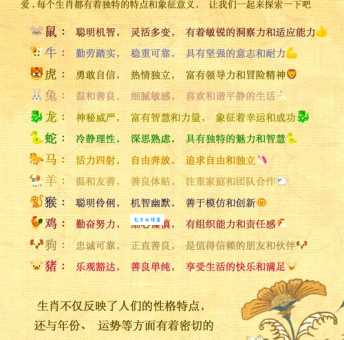 爱,每个生肖都有着独特的特点和象征意义， 让我们一起来探索一下吧
鼠： 聪明机智， 灵活多变， 有着敏锐的洞察力和适应能力
牛： 勤劳踏实， 稳重可靠， 具有坚强的意志和耐力
虎： 勇敢自信， 热情独立， 富有领导力和冒险精神
兔： 温和善良， 细腻敏感， 喜欢和谐平静的生活
龙： 神秘威严， 富有智慧和力量， 象征着幸运和成功
蛇： 冷静理性， 深思熟虑， 具有独特的魅力和智慧
马： 活力四射， 自由奔放， 追求自由和独立
羊： 温和友善， 善良体贴， 注重家庭和团队合作
猴： 聪明伶俐， 机智幽默， 善于模仿和创新
鸡： 勤奋努力， 细心谨慎， 有组织能力和责任感
狗： 忠诚可靠， 正直善良， 是值得信赖的朋友和伙伴
猪： 乐观豁达， 善良单纯， 享受生活的快乐和满足
生肖不仅反映了人们的性格特点，
还与年份、 运势等方面有着密切的